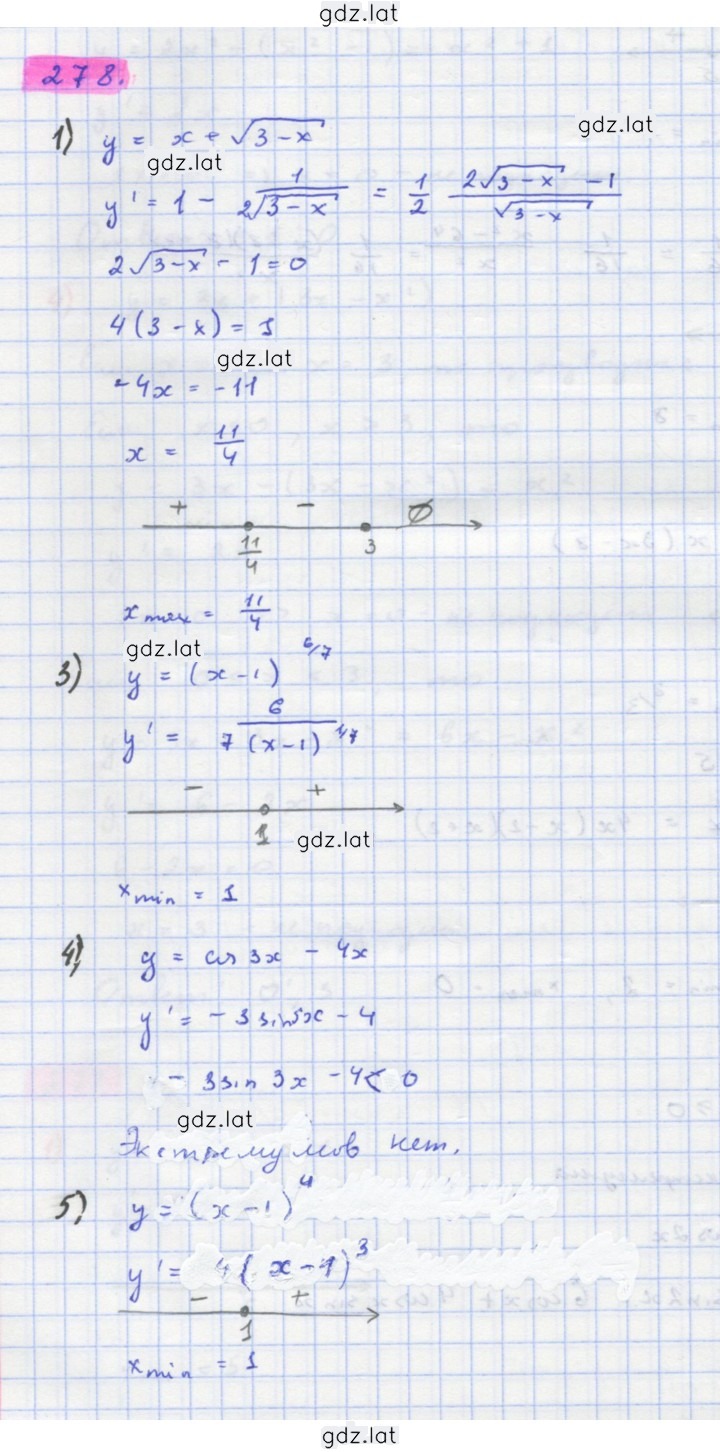 gdz.lat
278.
1) y = x + √(3-x)
gdz.lat
gdz.lat
y' = 1 - 1/(2√(3-x)) = 1/2 (2√(3-x) - 1)/√(3-x)
2√(3-x) - 1 = 0
4(3-x) = 1
gdz.lat
-4x = -11
x = 11/4
+ - Ø
11/4 3
x max = 11/4
gdz.lat
3) y = (x-1)^6/7
y' = 6/(7(x-1)^1/7)
- +
1
gdz.lat
x min = 1
4) y = cos 3x - 4x
y' = -3 sin 3x - 4
-3 sin 3x - 4 < 0
gdz.lat
Экстремумов нет.
5) y = (x-1)^4
y' = 4(x-1)^3
- +
1
x min = 1
gdz.lat